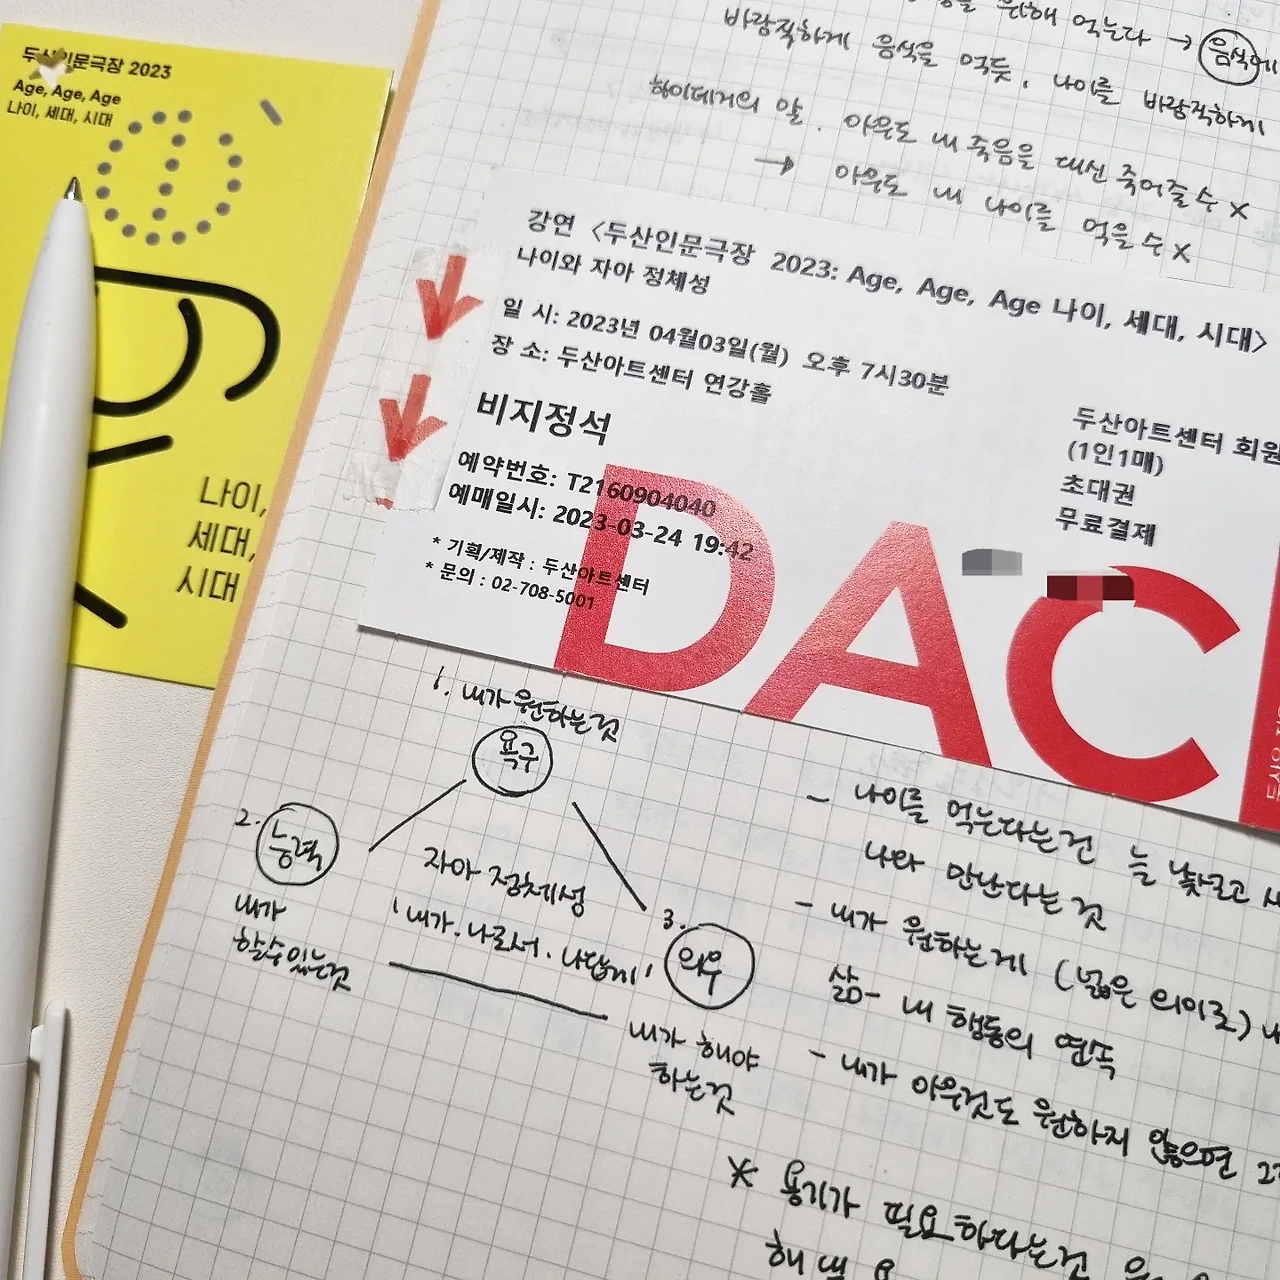 두산인문극장 2023
Age, Age, Age
나이, 세대, 시대
나이,
세대,
시대
원해 먹는다 → 음식에
바람직하게 음식을 먹듯, 나이를 바람직하게
하이데거의 말. 아무도 내 죽음을 대신 죽어줄 수 X
→ 아무도 내 나이를 먹을 수 X
강연 <두산인문극장 2023: Age, Age, Age 나이, 세대, 시대>
나이와 자아 정체성
일 시: 2023년 04월03일(월) 오후 7시30분
장 소: 두산아트센터 연강홀
비지정석
예약번호: T2160904040
예매일시: 2023-03-24 19:42
* 기획/제작 : 두산아트센터
* 문의 : 02-708-5001
두산아트센터 회원
(1인1매)
초대권
무료결제
DAC
1. 내가 원하는 것
욕구
2. 능력
내가
할 수 있는 것
자아 정체성
'내가. 나로서. 나답게'
3.
의무
내가 해야
하는 것
- 나이를 먹는다는 건 늘 낯설고
나와 만난다는 것
- 내가 원하는 게 (넓은 의미로)
삶- 내 행동의 연속
- 내가 아무것도 원하지 않으면
* 용기가 필요하다는 건